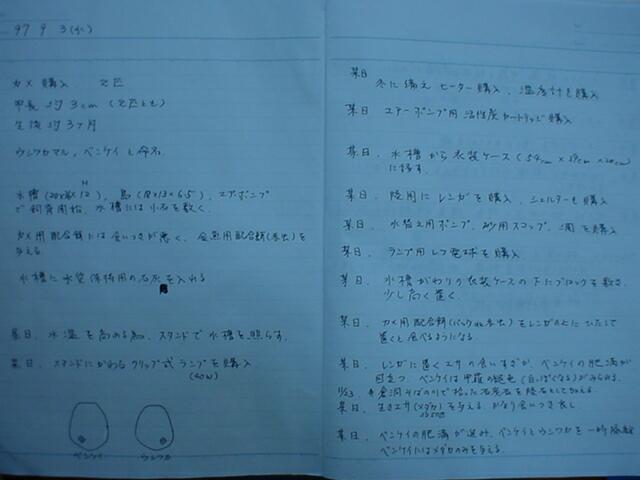 97 9 3(水)
カメ購入 2匹
甲長 約3cm (2匹とも)
生後 約3ヶ月
ウシワカマル, ベンケイ と命名
で飼育開始. 水槽には小石を敷く.
カメ用配合餌には食いつきが悪く, 金魚用配合餌
与える.
水槽に水質保持用の石灰を入れる
某日. 水温を高める為, スタンドで水槽を照らす.
某日. スタンドにかわるクリップ式ランプを購入
(40W)
ベンケイ ウシワカ
某日 冬に備え ヒーター購入, 温度計も購入
某日 エアーポンプ用 活性炭カートリッジ購入
某日. 水槽から衣装ケース
に移す.
某日. 陸用にレンガを購入, シェルターも購入
某日. 水替え用ポンプ, 砂用スコップ, 網を購入
某日. ランプ用レフ電球を購入
某日. 水槽がわりの衣装ケースの下にブロックを敷き,
少し高く置く.
某日. カメ用配合餌 をレンガの上にひたして
置くと食べるようになる
某日. レンガに置くエサの食いすぎか, ベンケイの肥満が
目立つ. ベンケイは甲羅の
某日. 生きエサ(メダカ)を与える. かなり食いつき良し
某日. ベンケイの肥満が進み, ベンケイとウシワカを一時隔離
ベンケイにはメダカのみを与える.